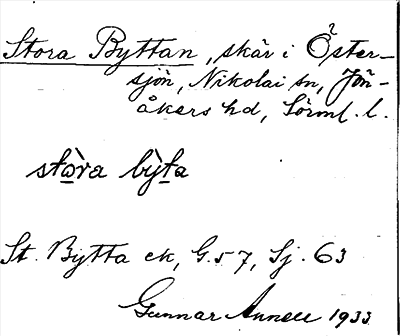 Stora Byttan, skär i Öster-
sjön, Nikolai sn, Jön-
åkers hd, Sörml. l.
stọ̀ra bỳta
St. Bytta ek, G.57, Sj. 63
Gunnar Annell 1933.